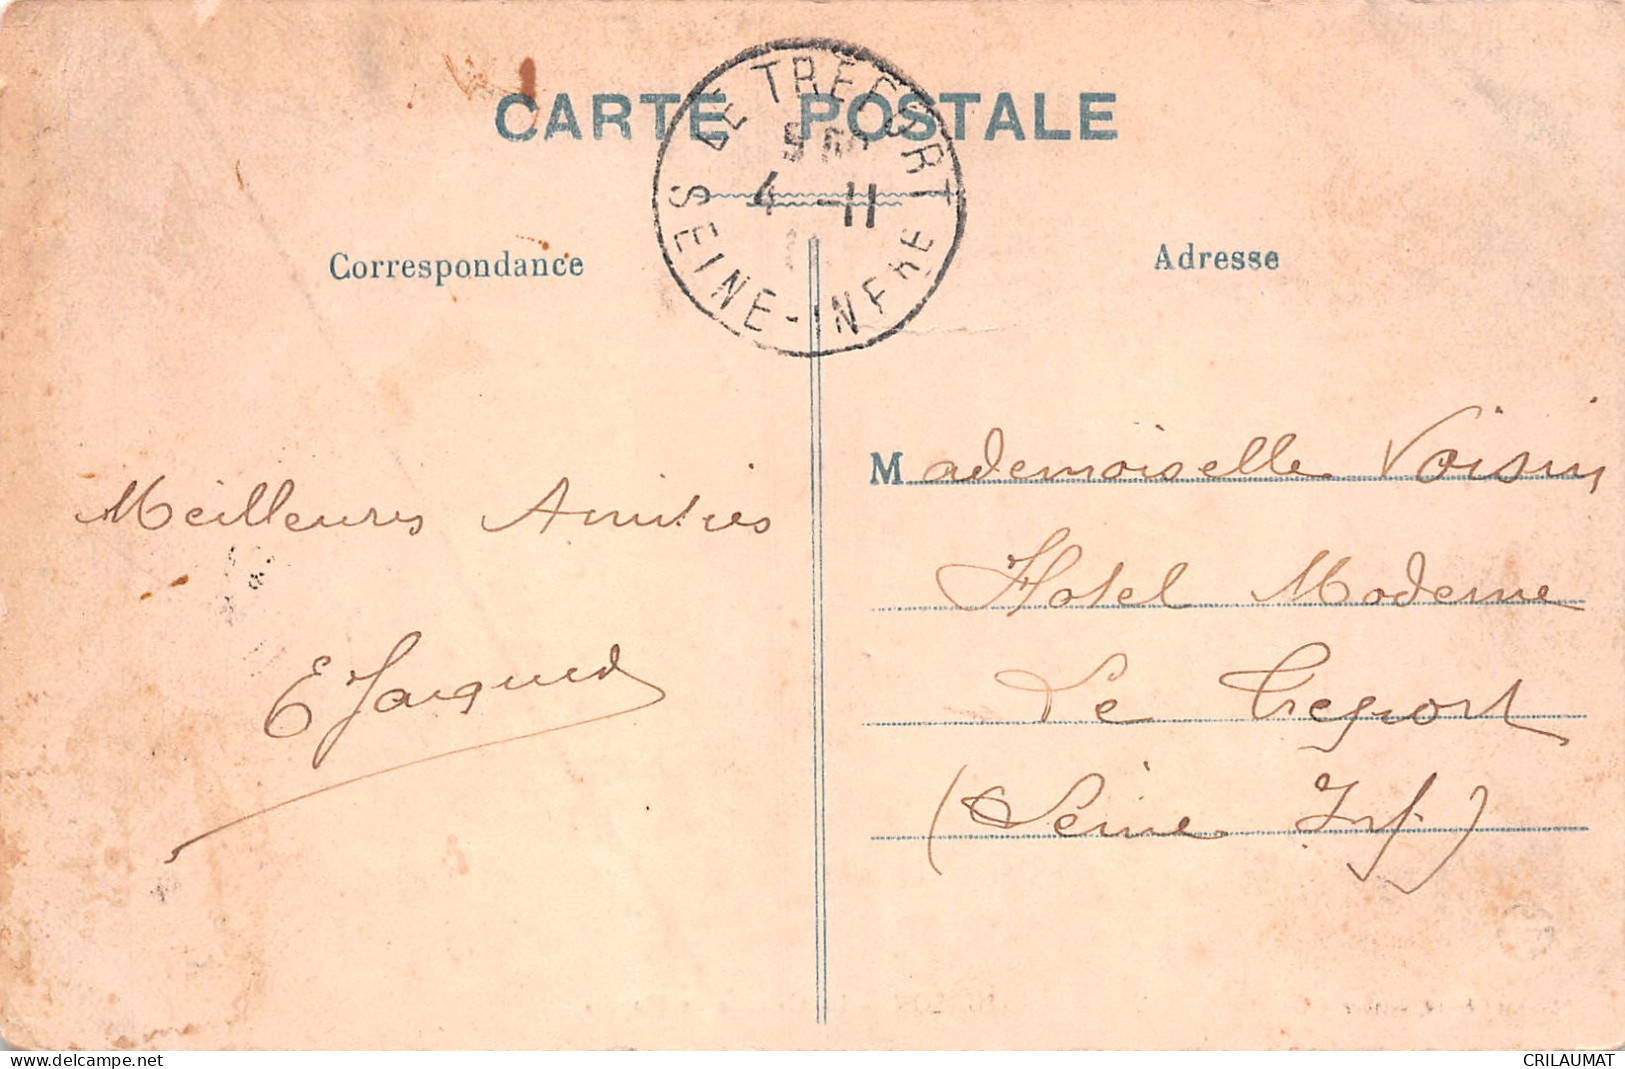 CARTE POSTALE
LE TREPORT
4 -11
SEINE-INFRE
Correspondance
Adresse
Meilleures Amitiés
E Jacques
Mademoiselle Voisin
Hotel Moderne
Le Treport
(Seine Inf.)
CRILAUMAT